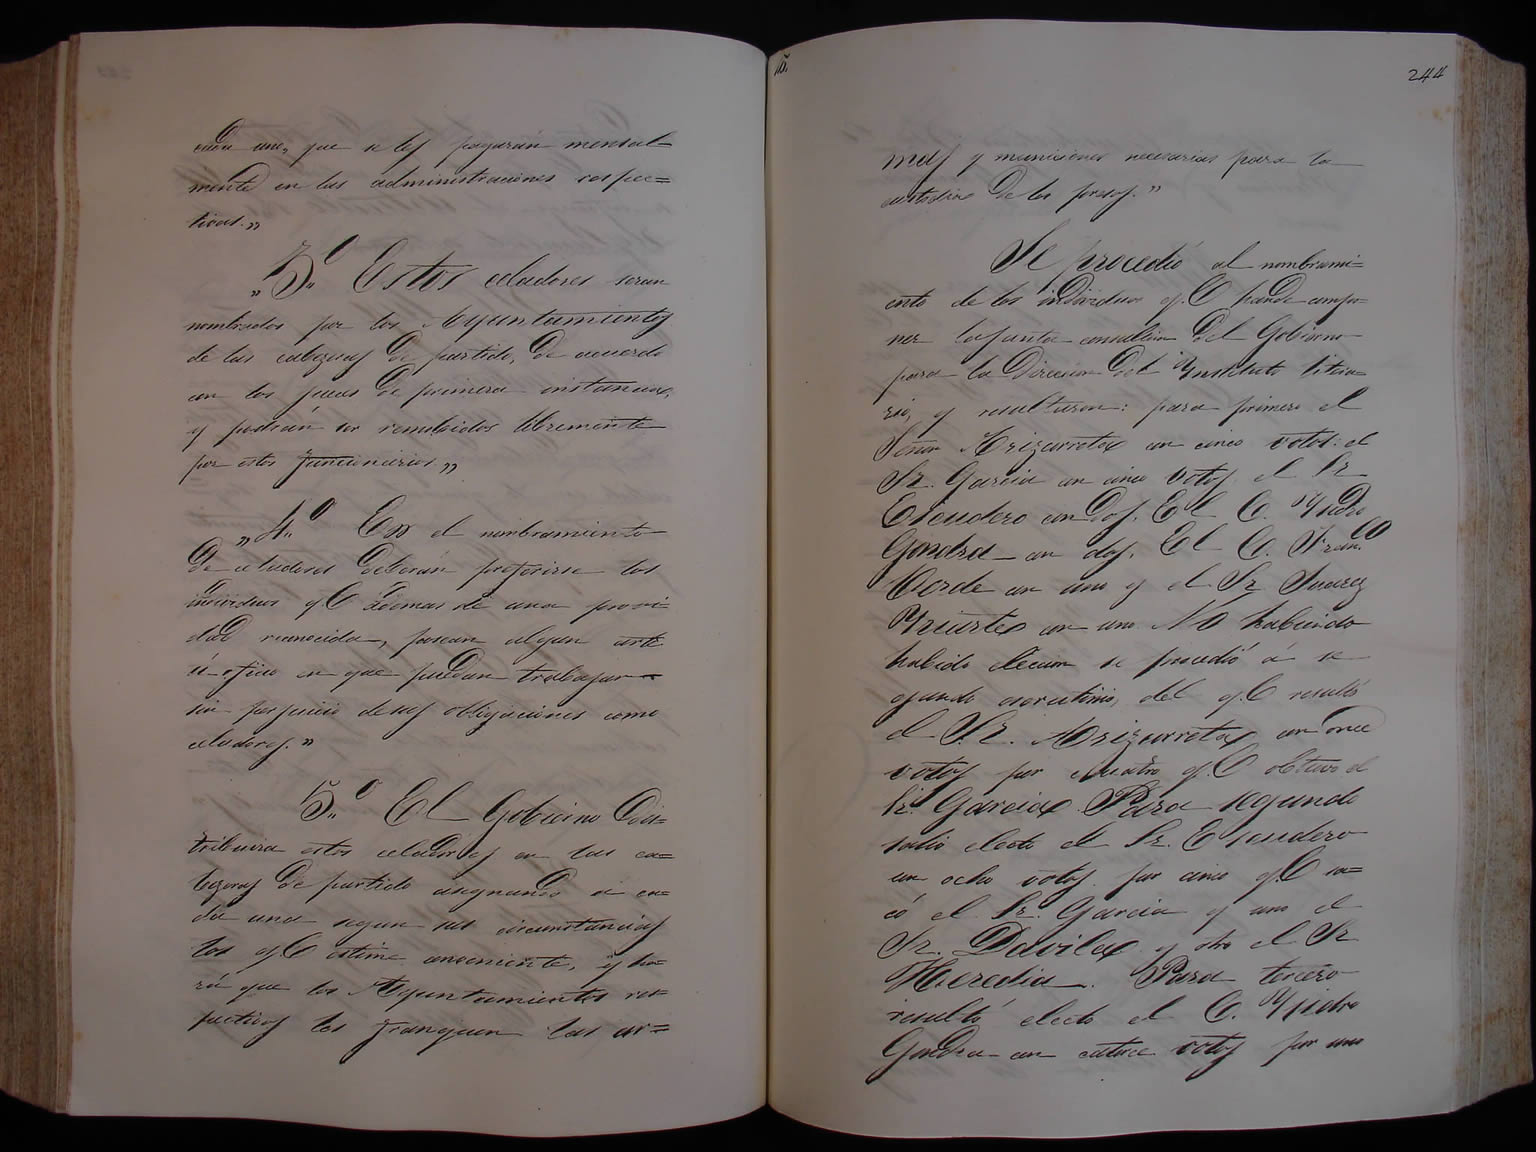 cada uno, que se les pagarán mensual=
mente en las administraciones respec=
tivas."
"3.º Estos celadores seran
nombrados por los Ayuntamientos
de las cabezeras de partido, de acuerdo
con los jueces de primera instancia,
y podrán ser removidos libremente
por estos funcionarios."
"4.º En el nombramiento
de celadores deberán preferirse los
individuos q.e ademas de una provi-
dad reconocida, posean algun arte
ú oficio en que puedan trabajar
sin perjuicio de sus obligaciones como
celadores."
5.º El Gobierno dis-
tribuira estos celadores en las ca=
bezeras de partido asignando á ca=
da una segun sus circunstancias
los q.e estime conveniente, y ha=
rá que los Ayuntamientos res-
pectivos les franqueen las ar=
15.
244
mas y municiones necesarias para la
custodia de los presos."
Se procedió al nombrami=
ento de los individuos q.e hande compo=
ner la junta consultiva del Gobierno
para la Direccion del Ynstituto litera=
rio, y resultaron: para primero el
Señor Arizcorreta con cinco votos: el
Sr. Garcia con cinco votos, el Sr
Escudero con dos. El C. Ysidro
Gondra con dos. El C. Fran.co
Verde con uno y el Sr Suarez
Yriarte con uno No habiendo
habido elecion se procedió á se
gundo escrutinio, del q.e resultó
el Sr. Arizcorreta con once
votos por cuatro q.e obtuvo el
Sr. Garcia Para segundo
salió electo el Sr. Escudero
con ocho votos por cinco q.e sa=
có el Sr. Garcia y uno el
Sr. Davila y otro el Sr
Heredia. Para tercero
resultó electo el C. Ysidro
Gondra con catorce votos por uno